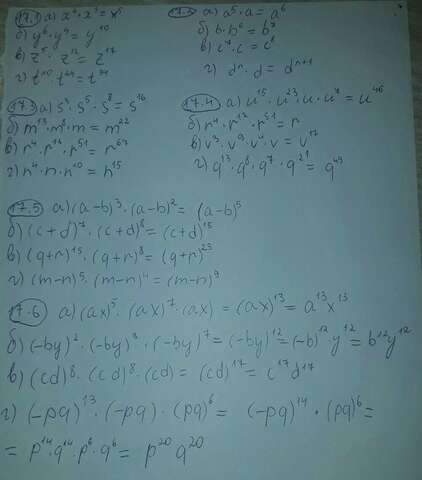 17.1 а) x² · x³ = x⁵
б) y⁶ · y⁴ = y¹⁰
в) z⁵ · z¹² = z¹⁷
г) t¹⁰ · t²⁴ = t³⁴
17.2 а) a⁵ · a = a⁶
б) b · b⁶ = b⁷
в) c⁷ · c = c⁸
г) dⁿ · d = dⁿ⁺¹
17.3 а) s³ · s⁵ · s⁸ = s¹⁶
б) m¹³ · m⁸ · m = m²²
в) r⁴ · r¹² · r⁵¹ = r⁶⁷
г) n⁴ · n · n¹⁰ = n¹⁵
17.4 а) u¹⁵ · u²³ · u · u⁷ = u⁴⁶
б) r⁴ · r¹² · r⁵¹ = r
в) v³ · v⁹ · v⁴ · v = v¹⁷
г) q¹³ · q⁸ · q⁷ · q²¹ = q⁴⁹
17.5 а) (a-b)³ · (a-b)² = (a-b)⁵
б) (c+d)⁷ · (c+d)⁸ = (c+d)¹⁵
в) (q+r)¹⁵ · (q+r)⁸ = (q+r)²³
г) (m-n)⁵ · (m-n)⁴ = (m-n)⁹
17.6 а) (ax)⁵ · (ax)⁷ · (ax) = (ax)¹³ = a¹³x¹³
б) (-by)² · (-by)³ · (-by)⁷ = (-by)¹² = (-b)¹²y¹² = b¹²y¹²
в) (cd)⁸ · (cd)⁸ · (cd) = (cd)¹⁷ = c¹⁷d¹⁷
г) (-pq)¹³ · (-pq) · (pq)⁶ = (-pq)¹⁴ · (pq)⁶ =
= p¹⁴ · q¹⁴ · p⁶ · q⁶ = p²⁰q²⁰